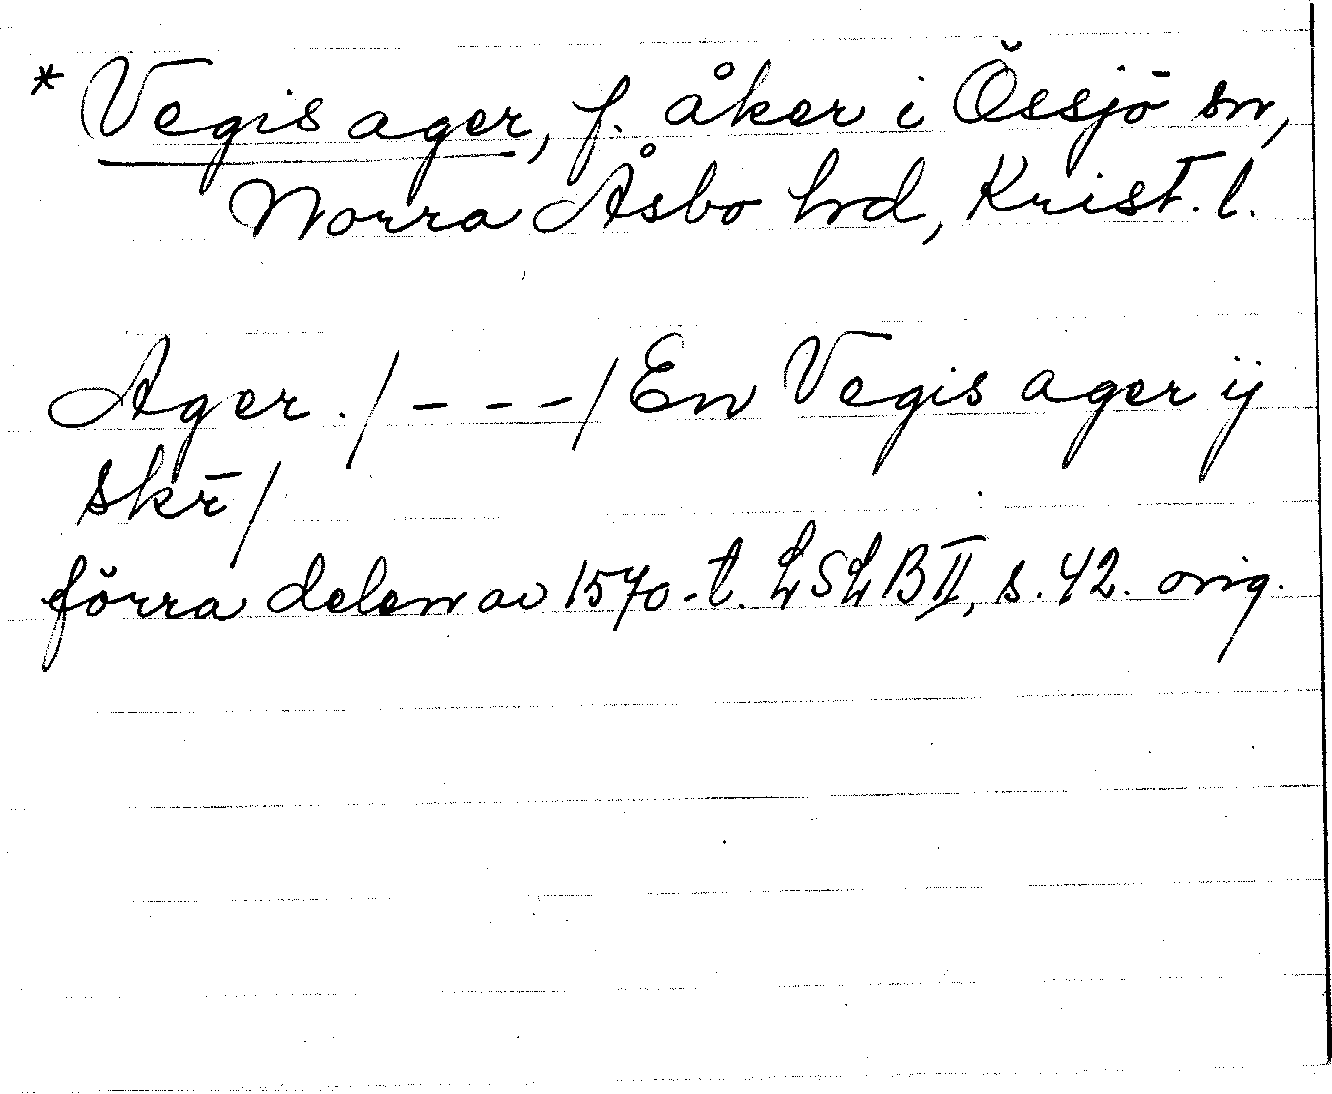 * Vegis ager, f. åker i Össjö sn,
Norra Åsbo hrd, Krist. l.
Ager ./---/ En Vegis ager ij
skr̄/
förra delen av 1570-t. LSLB II, s. 42. orig.